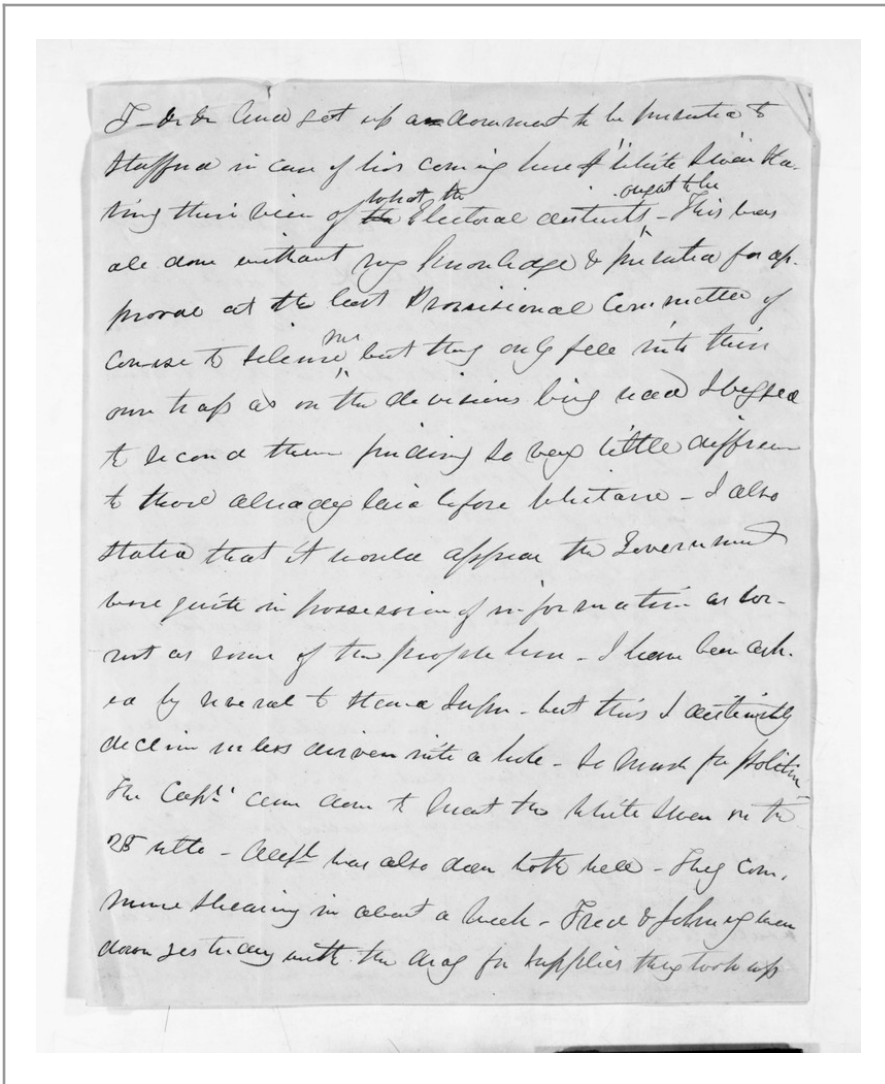 set up a document to be presented to
Stafford in case of his coming here p White Swan sta-
ting their view of what the Electoral districts ought to be - This was
all done without my knowledge & presented for ap-
proval at the last Provisional Committee of
course to silence me but they only fell into their
own trap as on the divisions being read I begged
to second them finding so very little difference
to those already laid before Whitaker - I also
stated that it would appear the Government
were quite in possession of information as cor-
rect as some of the people here - I have been ask-
ed by several to stand Supn. - but this I distinctly
decline unless driven into a hole - So much for politics
The Captn. came down to meet the White Swan on the
25 ulto - Alexr. was also down both well - They com-
mence shearing in about a week - Fred & Johnny were
down yesterday with the dray for supplies they took up